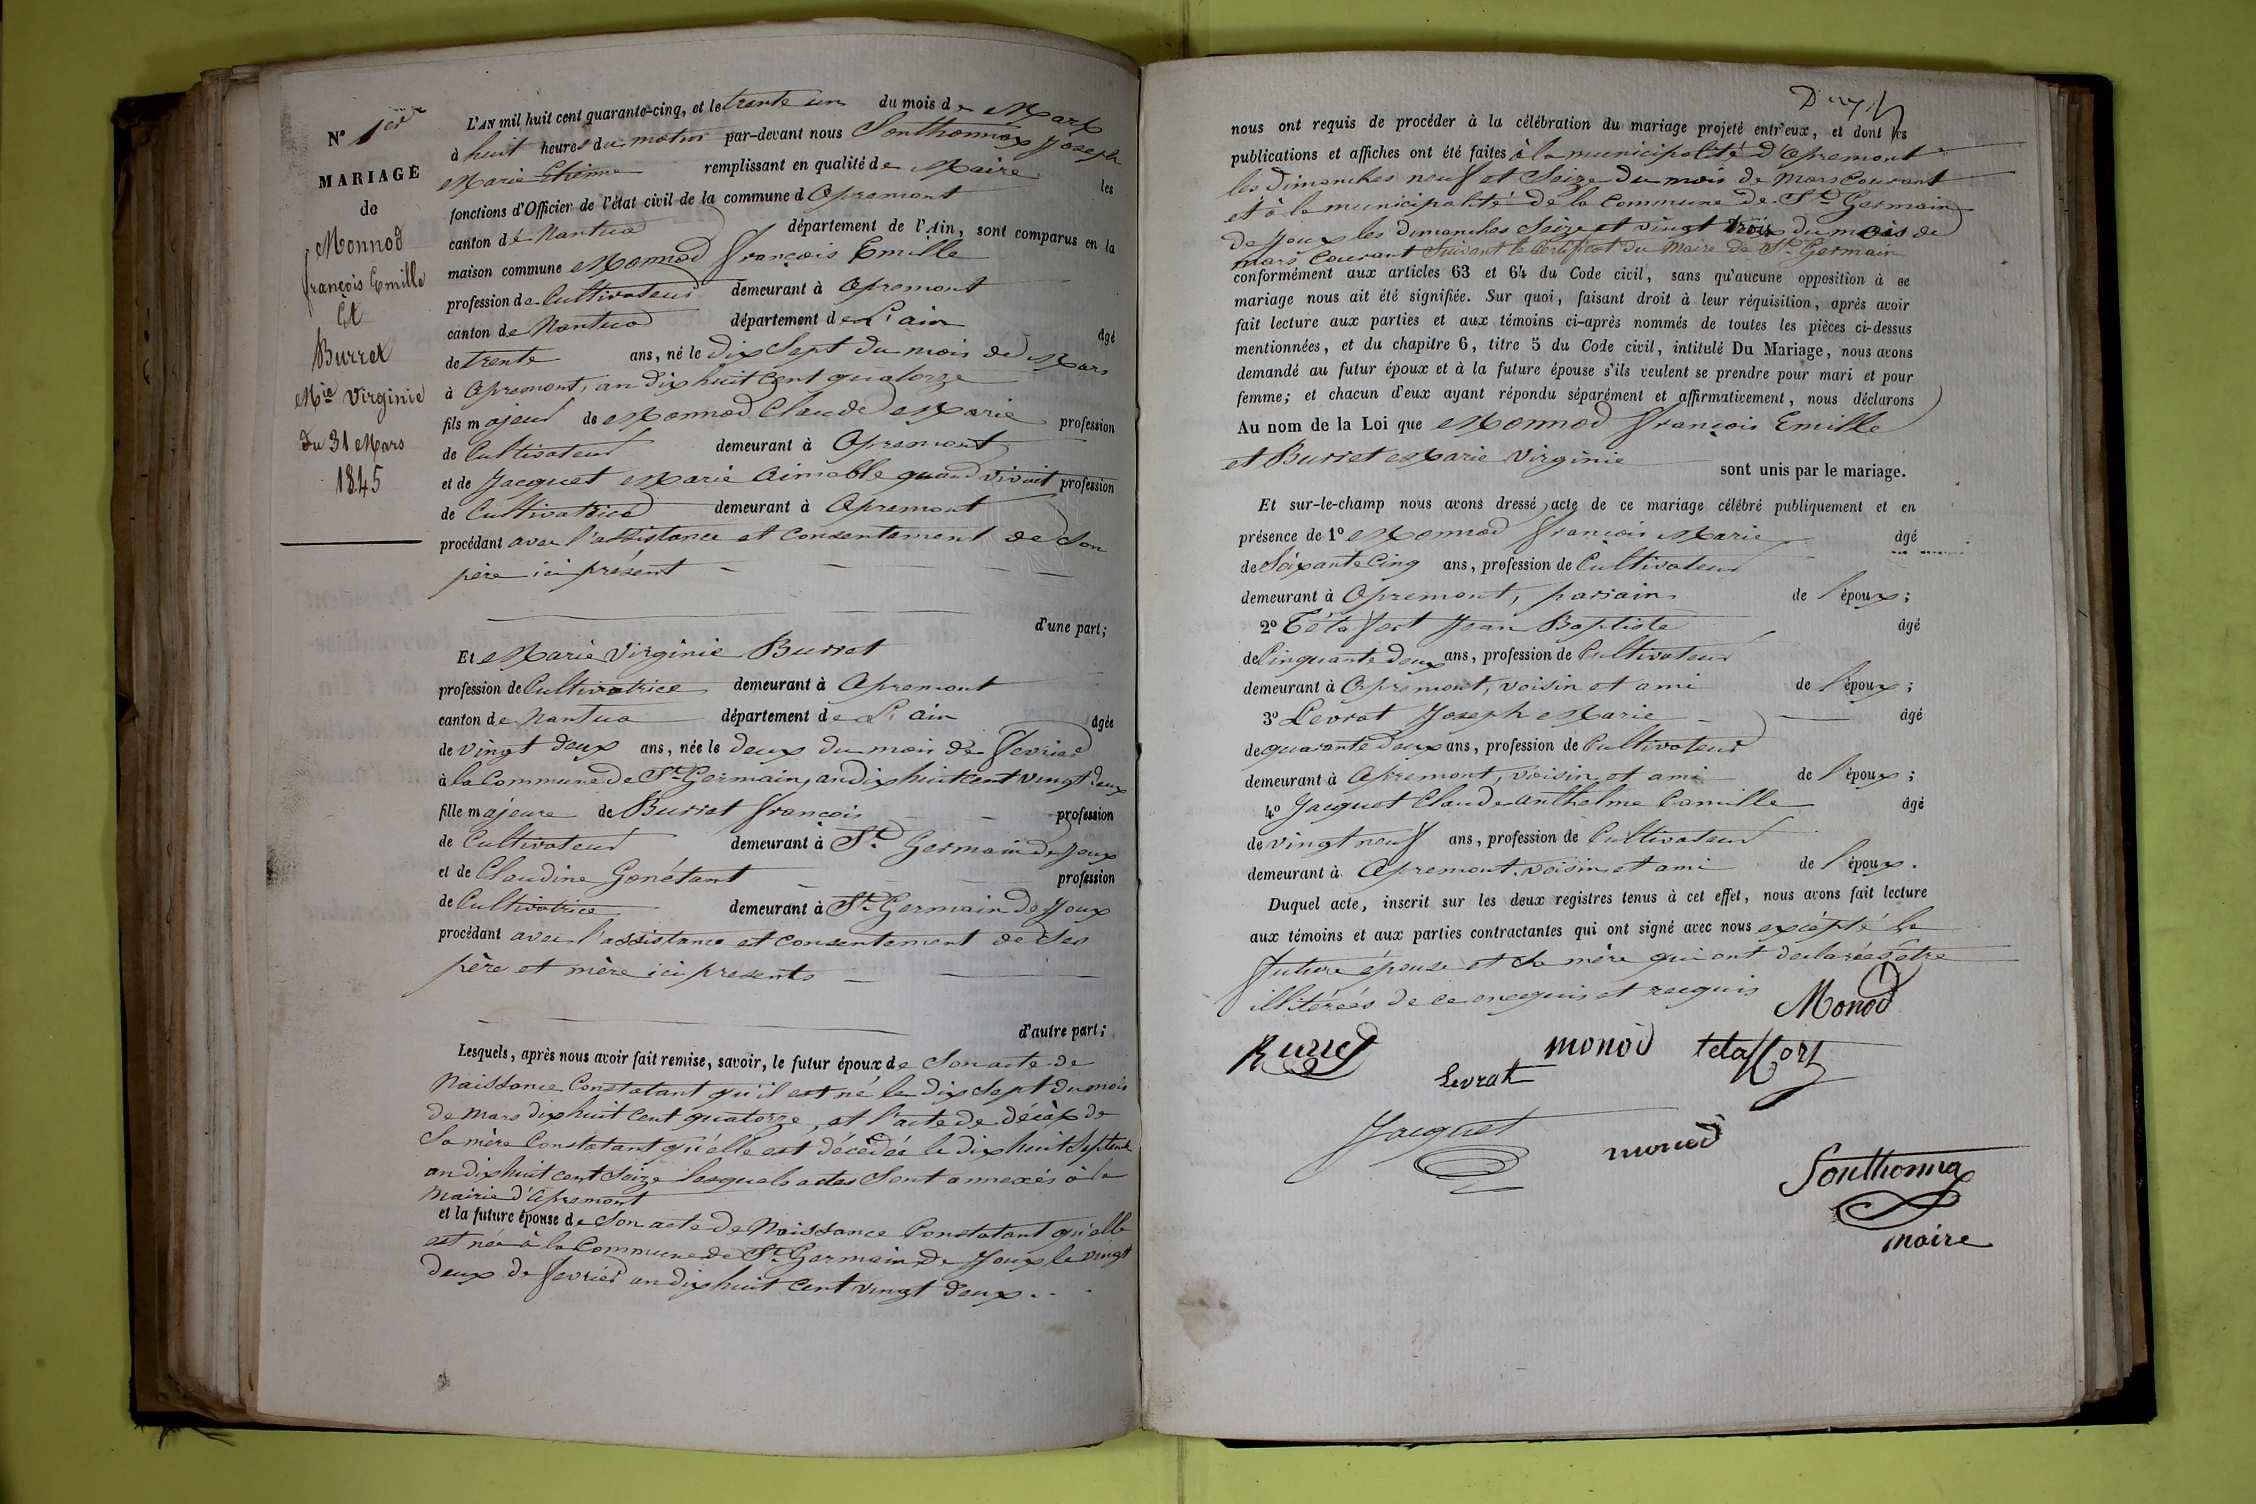 N° 1er
MARIAGE
de
Monnod
françois Emille
Et
Burret
Mie Virginie
du 31 Mars
1845
L'AN mil huit cent quarante-cinq, et le trente un du mois de Mars
à huit heures du matin par-devant nous Sonthonnax Joseph
Marie Etienne remplissant en qualité de Maire les
fonctions d'Officier de l'état civil de la commune d Apremont
canton de Nantua département de l'Ain, sont comparus en la
maison commune Monnod françois Emille
profession de Cultivateur demeurant à Apremont
canton de Nantua département de L'ain âgé
de trente ans, né le dix Sept du mois de Mars
à Apremont, an dix huit cent quatorze
fils majeur de Monnod Claude Marie profession
de Cultivateur demeurant à Apremont
et de Jacquet Marie Aimable quand vivoit profession
de Cultivatrice demeurant à Apremont
procédant avec l'assistance et consentement de Son
père ici présent
d'une part;
Et Marie Virginie Burret
profession de Cultivatrice demeurant à Apremont
canton de Nantua département de L'ain âgée
de vingt deux ans, née le deux du mois de fevrier
à la Commune de St Germain, an dix huit cent vingt deux
fille majeure de Burret françois profession
de Cultivateur demeurant à St Germain de Joux
et de Claudine Gonétant profession
de Cultivatrice demeurant à St Germain de Joux
procédant avec l'assistance et consentement de Ses
père et mère ici presents
d'autre part;
Lesquels, après nous avoir fait remise, savoir, le futur époux de Son acte de
Naissance Constatant qu'il est né le dix Sept du mois
de Mars dix huit cent quatorze, et l'acte de décès de
Sa mère Constatant qu'elle est décédée le dix huit Septembre
an dix huit cent Seize lesquels actes Sont annexés à la
Mairie d'Apremont
et la future épouse de Son acte de Naissance Constatant qu'elle
est née à la Commune de St Germain de Joux le vingt
deux de fevrier an dix huit cent vingt deux
nous ont requis de procéder à la célébration du mariage projeté entr'eux, et dont les
publications et affiches ont été faites à la municipalité d'Apremont
les dimanches neuf et Seize du mois de Mars Courant
et à la municipalité de la Commune de St Germain
de Joux les dimanches Seize et vingt trois du mois de
mars Courant Suivant le Certificat du Maire de St Germain
conformément aux articles 63 et 64 du Code civil, sans qu'aucune opposition à ce
mariage nous ait été signifiée. Sur quoi, faisant droit à leur réquisition, après avoir
fait lecture aux parties et aux témoins ci-après nommés de toutes les pièces ci-dessus
mentionnées, et du chapitre 6, titre 5 du Code civil, intitulé Du Mariage, nous avons
demandé au futur époux et à la future épouse s'ils veulent se prendre pour mari et pour
femme; et chacun d'eux ayant répondu séparément et affirmativement, nous déclarons
Au nom de la Loi que Monnod françois Emille
et Burret Marie Virginie sont unis par le mariage.
Et sur-le-champ nous avons dressé acte de ce mariage célébré publiquement et en
présence de 1° Monnod françois Marie âgé
de Soixante Cinq ans, profession de Cultivateur
demeurant à Apremont, parrain de l'époux;
2° Téta fort Jean Baptiste âgé
de Cinquante deux ans, profession de Cultivateur
demeurant à Apremont, voisin et ami de l'époux;
3° Levrat Joseph Marie âgé
de quarante deux ans, profession de Cultivateur
demeurant à Apremont, voisin et ami de l'époux;
4° Jacquet Claude anthelme Camille âgé
de vingt neuf ans, profession de Cultivateur
demeurant à Apremont, voisin et ami de l'époux.
Duquel acte, inscrit sur les deux registres tenus à cet effet, nous avons fait lecture
aux témoins et aux parties contractantes qui ont signé avec nous excépté la
future épouse et Sa mère qui ont declarées être
illitérées de ce enequis et requis
Monod
Burret monod tetaffort
Levrat
Jacquet monod
Sonthonnax
maire